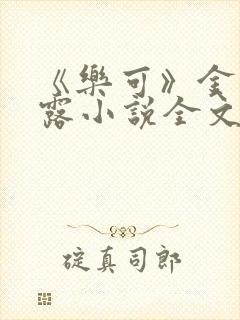 《樂可》金
露小說全文
碇真司郎